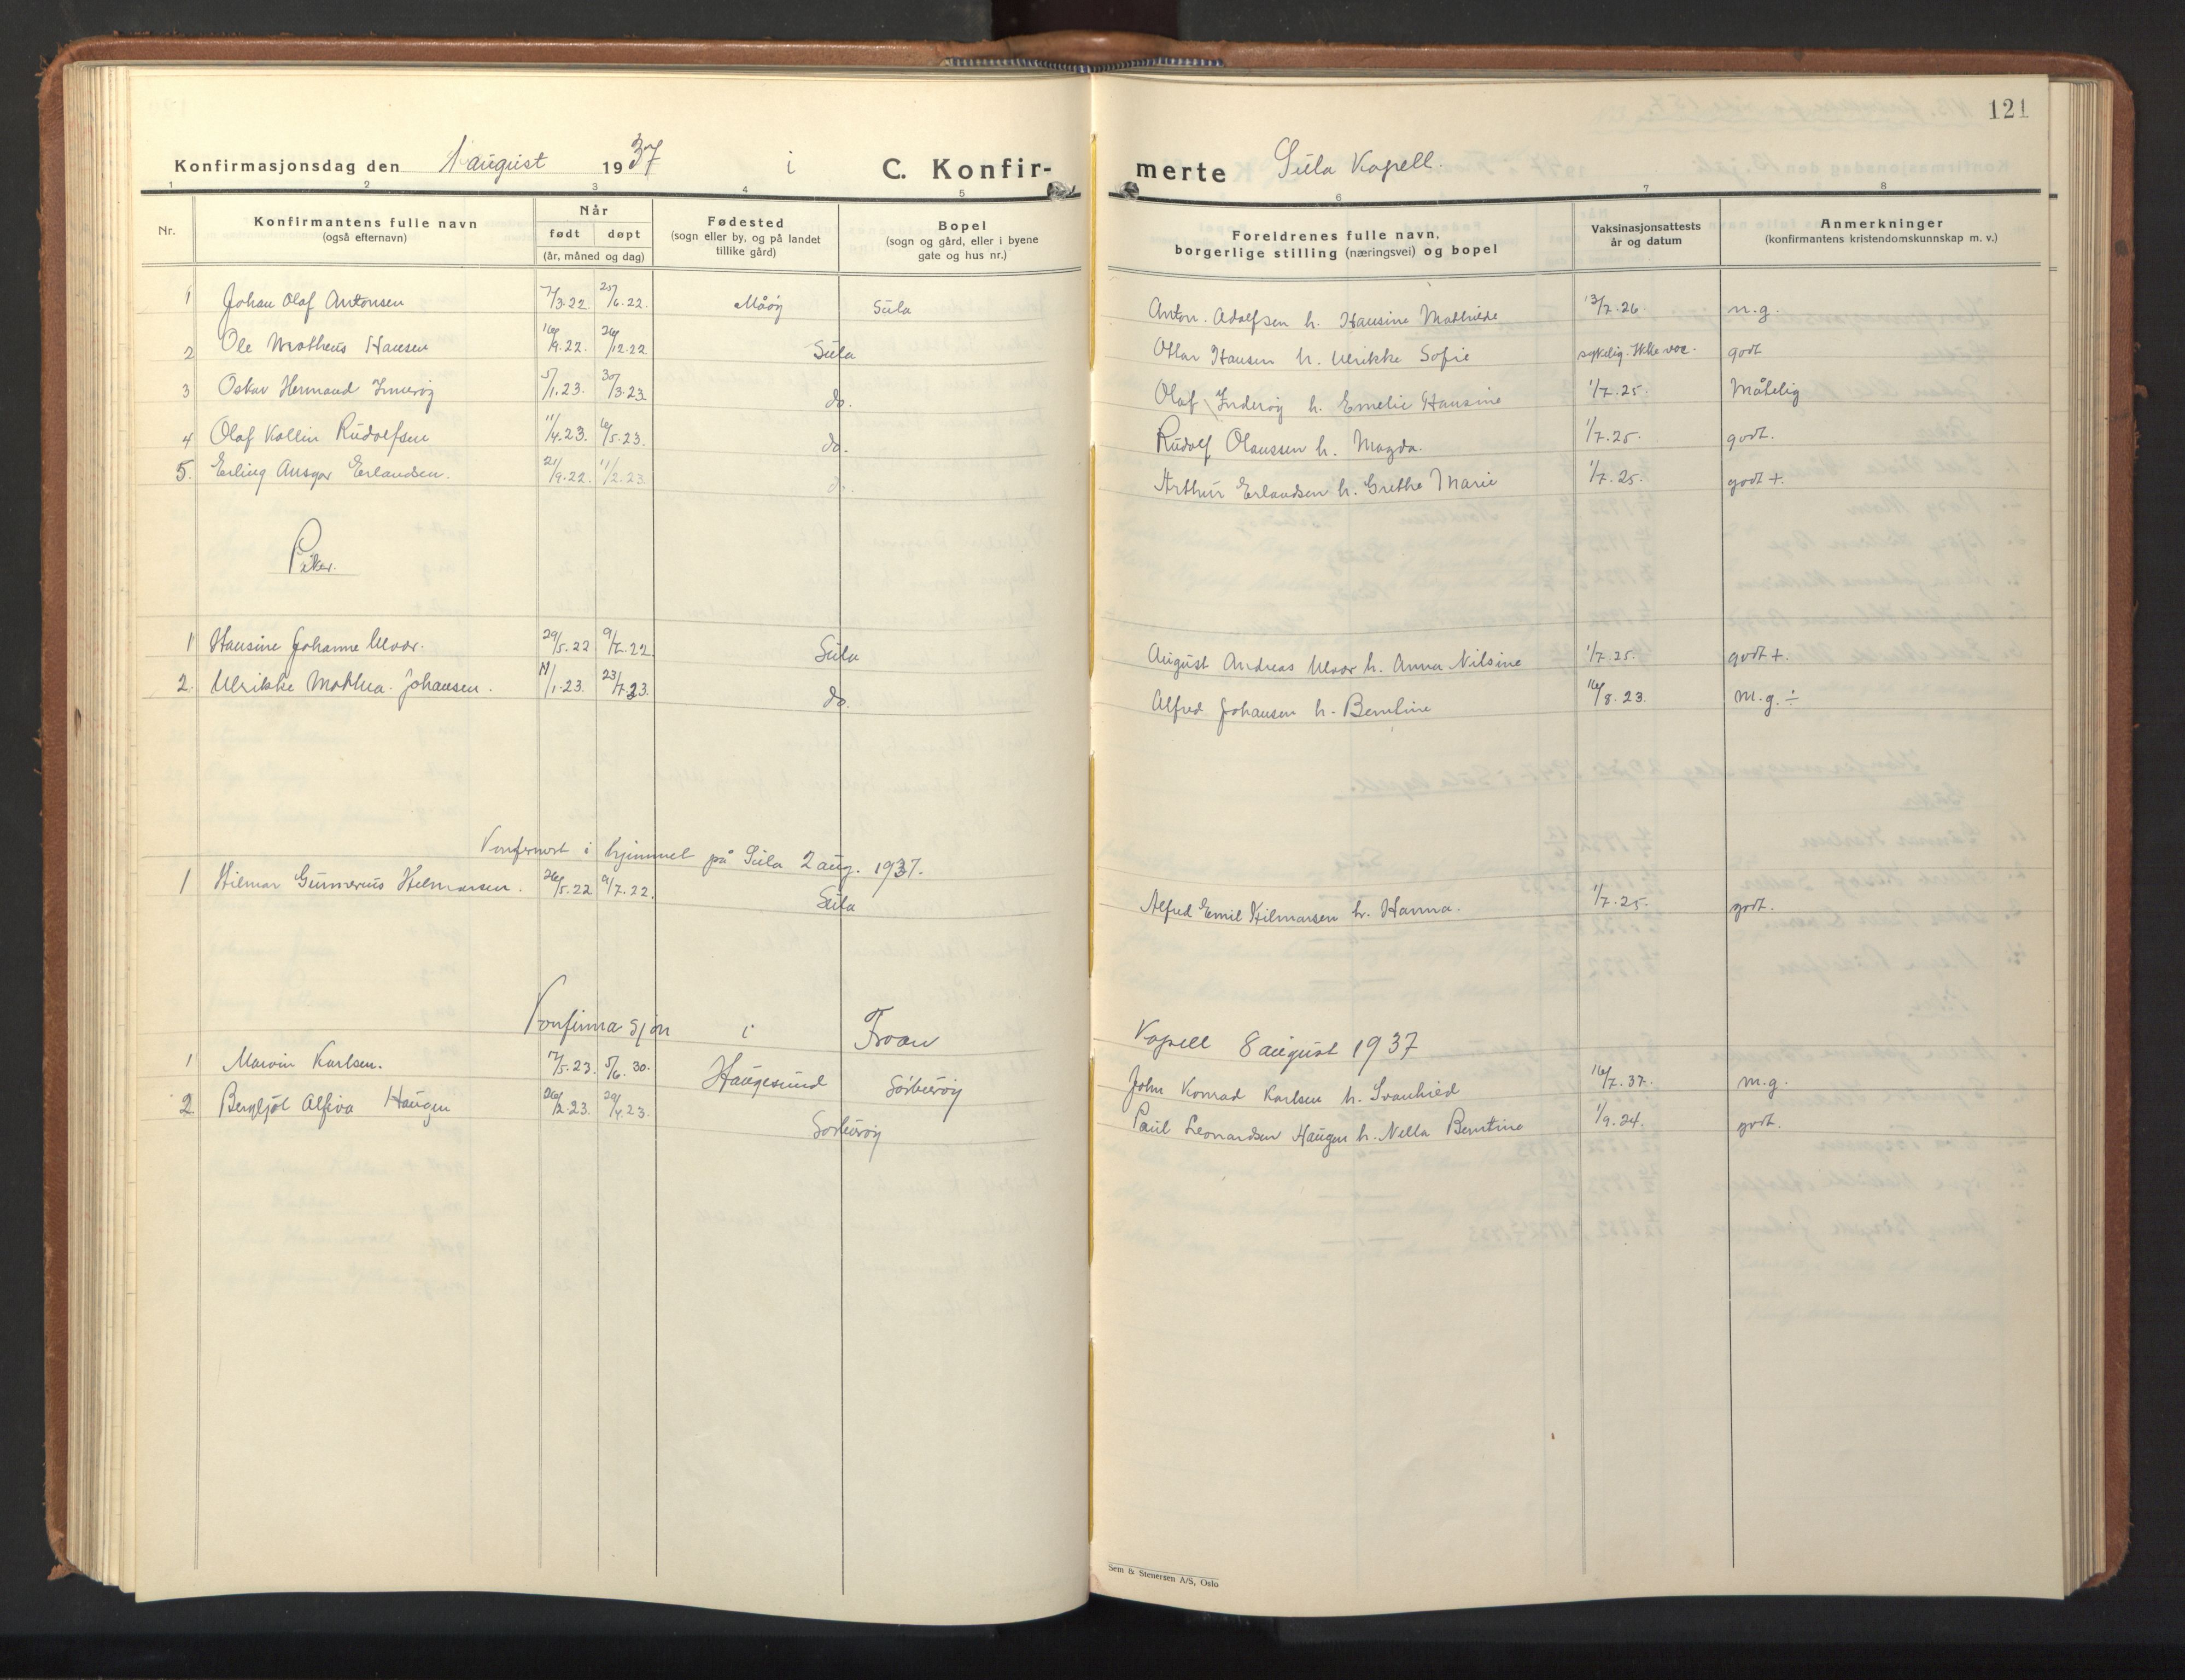 121
Konfirmasjonsdag den 1 august 1937 i C. Konfirmerte Sula Kapell.
1 2 3 4 5 6 7 8
Nr. Konfirmantens fulle navn (også efternavn) Når født døpt (år, måned og dag) Fødested (sogn eller by, og på landet tillike gård) Bopel (sogn og gård, eller i byene gate og hus nr.) Foreldrenes fulle navn, borgerlige stilling (næringsvei) og bopel Vaksinasjonsattests år og datum Anmerkninger (konfirmantens kristendomskunnskap m. v.)
1 Johan Olaf Antonsen 7/3.22. 25/6.22. Måøy Sula Anton. Adolfsen h. Hansine Mathilde 13/7.26 n.g.
2 Ole Matheus Hansen 16/9.22. 26/12.22 Sula Ottar Hansen h. Ulrikke Sofie sykelig. Ikke vac. godt
3 Oskar Hermand Inderøy 5/1.23. 30/3.23 do. Olaf Inderøy h. Emelie Hansine 1/7.25. Måtelig
4 Olaf Kollin Rudolfsen 11/4.23. 16/5.23. do. Rudolf Olaussen h. Magda. 1/7.25. godt.
5. Erling Ansgar Erlandsen. 21/9.22. 11/2.23 do. Arthur Erlandsen h. Grethe Marie 1/7.25. godt +.
Piker.
1 Hansine Johanne Ulvær. 29/5.22 9/7.22. Sula August Andreas Ulvær h. Anna Nilsine 1/7.25. godt +.
2. Ulrikke Mathea. Johansen. 11/1.23. 23/7.23. do. Alfred Johansen h. Berntine 16/8.23. m.g. ÷
Konfirmert i hjemmet på Sula 2 aug. 1937.
1 Hilmar Gunnerius Hilmarsen. 26/5.22 9/7.22. Sula Alfred Emil Hilmarsen h. Hanna. 1/7.25. godt.
Konfirmasjon i Froan Kapell 8 august 1937
1 Marvin Karlsen. 7/5.23. 5/6.30. Haugesund Sørburøy John Konrad Karlsen h. Svanhild 16/7.37. m.g.
2 Bergljot Alfiva Haugen 26/2.23. 29/4.23. Sørburøy Paul Leonardsen Haugen h. Nella Berntine 1/9.24. godt.
Sem & Stenersen A/S, Oslo